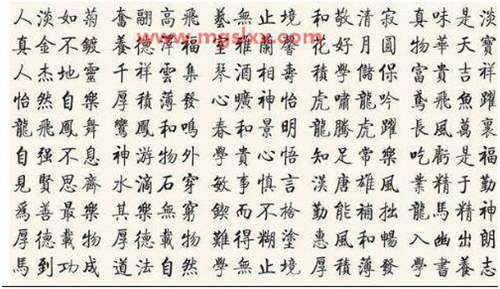 人淡如菊 奮翮高飛 藝無止境 和敬清寂 真味是淡
www.mgslxx.com
真金不鍍 養德澤福 室雅蘭馨 花好月圓 物華天寶
人杰地靈 千祥雲集 琴酒壽 積學儲保 富貴吉祥
怡然自樂 厚積薄發 心曠神怡 虎嘯龍吟 鳶飛魚躍
龍飛鳳舞 鸞鳳和鳴 春和景明 龍騰虎躍 長風萬裏
自强不息 神游物外 學貴心悟 知足常樂 吃虧是福
見賢思齊 水滴石穿 敏事慎言 漢唐雄風 業精于勤
爲善最樂 其樂無窮 鍥而不捨 勤能補拙 龍馬精神
厚德載物 厚德載物 難得糊塗 惠風和暢 入幽出朗
馬到功成 道法自然 學無止境 厚積薄發 學書養志